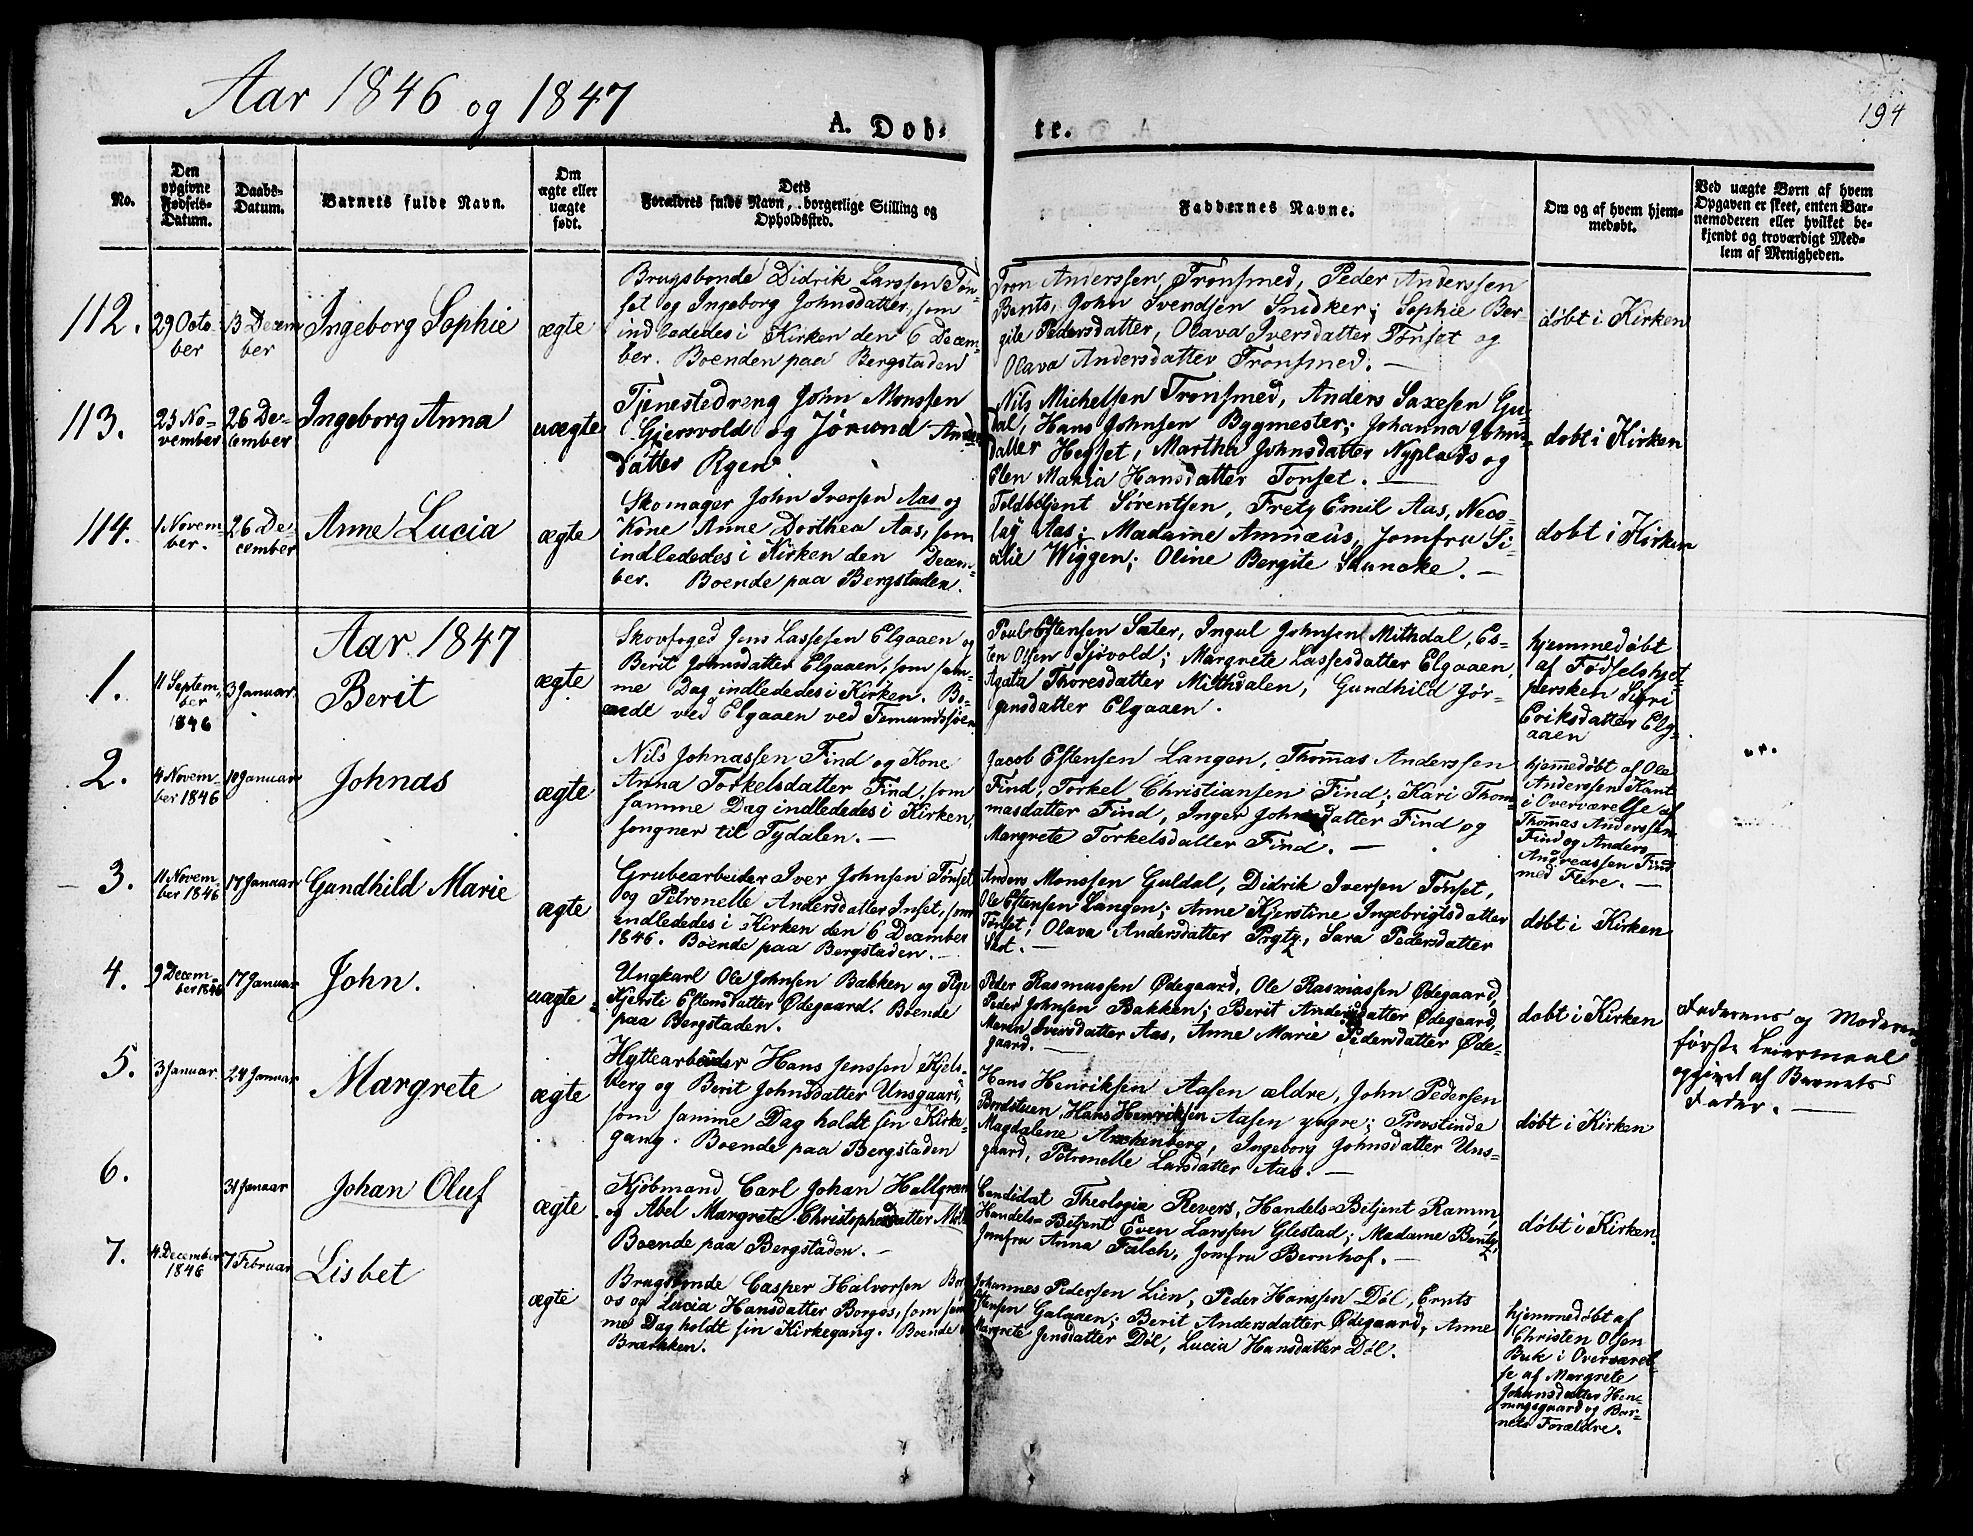 Aar 1846 og 1847
194
A. Døb-
te.
No.
Den
opgivne
Fødsels-
Datum.
Daabs-
Datum.
Barnets fulde Navn.
Om
ægte eller
uægte
født.
Dets
Forældres fulde Navn, borgerlige Stilling og
Opholdssted.
Faddernes Navne.
Om og af hvem hjem-
medøbt.
Ved uægte Børn af hvem
Opgaven er skeet, enten Bar-
nemoderen eller hvilket be-
kjendt og troværdigt Med-
lem af Menigheden.
112.
29 Octo-
ber
13 Decem
ber
Ingeborg Sophie
ægte
Brugsbonde Didrik Larssen Tøn-
set og Ingeborg Johnsdatter, som
indlededes i Kirken den 6 Decem-
ber. Boenden paa Bergstaden
Tron Anderssen, Tronsmed, Peder Anderssen
Bents, John Svendsen Snedker; Sophie Ber
gite Pedersdatter, Olava Iversdatter Tønset og
Olava Andersdatter Tronsmed. —
døbt i Kirken
113.
25 No-
vember
26 De-
cember
Ingeborg Anna
uægte
Tjenestedreng John Monssen
Gjersvold og Jørund Anders
datter Rgen
Nils Michelsen Tronsmed, Anders Saxesen Gul
dal, Hans Johnsen Bygmester; Johanna Johns-
datter Hegset, Martha Johnsdatter Nyplads og
Elen Maria Hansdatter Tønset. —
døbt i Kirken
114.
1 Novem-
ber.
26 De-
cember
Anne Lucia
ægte
Skomager John Iversen Aas og
Kone Anne Dorthea Aas, som
indlededes i Kirken den Decem-
ber. Boende paa Bergstaden.
Toldbetjent Sørentsen, Fretz Emil Aas, Neco-
lay Aas; Madame Ammæus, Jomfru Si-
alie Wiggen; Oline Bergite Skancke. —
døbt i Kirken
Aar 1847
1.
11 Septem-
ber
1846
3 Januar
Berit
ægte
Skovfoged Jens Lassesen Elgaaen og
Berit Johnsdatter Elgaaen, som sam-
me Dag indlededes i Kirken. Bo-
ende ved Elgaaen ved Femundssøen
Poul Estensen Sæter, Ingul Johnsen Mithdal, Es-
ten Olsen Sjøvold; Margrete Lassesdatter Elgaaen,
Agata Thoresdatter Mithdalen, Gundhild Jør-
gensdatter Elgaaen.
hjemmedøbt
af Fødselshjel-
persken Sigri
Eriksdatter Elg-
aaen
2.
4 Novem-
ber 1846
10 Januar
Johnas
ægte
Nils Johnassen Find og Kone
Anna Torkelsdatter Find, som
samme Dag indlededes i Kirken,
songner til Tydalen. —
Jacob Estensen Langen, Thomas Anderssen
Find, Torkel Christiansen Find; Kari Thom-
masdatter Find, Inger Johnsdatter Find og
Margrete Torkelsdatter Find. —
hjemmedøbt af Ole
Anderssen Kant
i Overværelse af
Thomas Anderssen
Find og Anders
Andreassen Find
med Flere. —
3.
11 Novem-
ber 1846
17 Januar
Gundhild Marie
ægte
Grubearbeider Iver Johnsen Tønset
og Petronelle Andersdatter Inset, som
indlededes i Kirken den 6 December
1846. Boende paa Bergstaden. —
Anders Monssen Guldal, Didrik Iversen Tønset,
Ole Estensen Langen; Anne Kjerstine Ingebrigtsdatter
Tønset; Olava Andersdatter Prytz, Sara Pedersdatter
Slot. —
døbt i Kirken
4.
9 Decem-
ber 1846
17 Januar
John.
uægte
Ungkarl Ole Johnsen Bakken og Pige
Kjersti Estensdatter Ødegaard. Boende
paa Bergstaden.
Peder Rasmussen Ødegaard, Ole Rasmussen Ødegaard,
Peder Johnsen Bakken; Berit Andersdatter Ødegaard,
Maren Iversdatter Aas, Anne Marie Pedersdatter Øde-
gaard. —
døbt i Kirken
Faderens og Moderens
første Leiermaal
opgivet af Barnets
Fader. —
5.
3 Januar
24 Januar
Margrete
ægte
Hyttearbeider Hans Jenssen Kjels-
berg og Berit Johnsdatter Unsgaard,
som samme Dag holdt sin Kirke-
gang. Boende paa Bergstaden
Hans Henriksen Aasen ældre, John Pedersen
Bordstuen, Hans Henriksen Aasen yngre; Provstinde
Magdalene Aschenberg, Ingeborg Johnsdatter Uns-
gaard, Petronelle Larsdatter Aas. —
døbt i Kirken
6.
31 Januar
Johan Oluf
ægte
Kjøbmand Carl Johan Hallgren
og Abel Margrete Christophersdatter
Boende paa Bergstaden. —
Candidat Theologiæ Revers, Handels-Betjent Ramm,
Handels-Betjent Even Larssen Glestad; Madame Bentz,
Jomfru Anna Falch, Jomfru Bernhof. —
døbt i Kirken.
7.
4 December
1846
7 Februar
Lisbet
ægte
Brugsbonde Casper Halvorsen Bor
os og Lucia Hansdatter Borgos, som sam
me Dag holdt sin Kirkegang. Boende i
Brækken.
Johannes Pedersen Lien, Peder Hanssen Døl, Ernts
Estensen Galaaen; Berit Andersdatter Ødegaard, Anne
Margrete Jensdatter Døl, Lucia Hansdatter Døl.
hjemmedøbt af
Christen Olsen
Buk i Overværel-
se af Margrete
Johansdatter Hen-
ningsgaard og Bar-
nets Forældre.